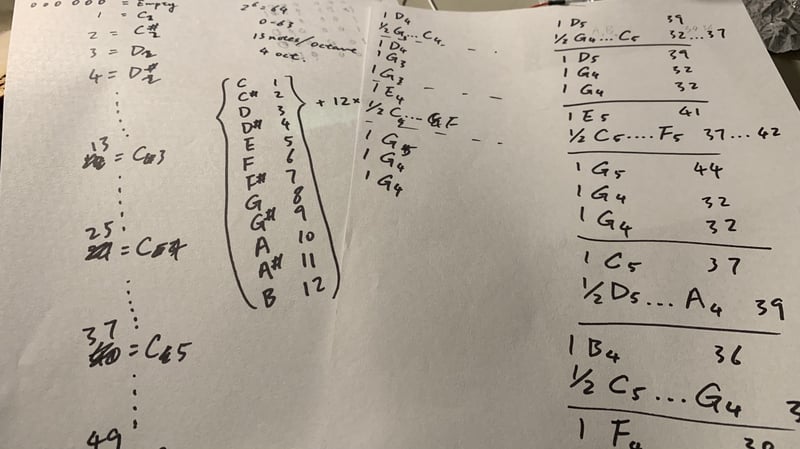 0 0 0 0 0 0 = Empty
1 = C2
2 = C#2
3 = D2
4 = D#2
13 = C3
25 = C4
37 = C5
49
2^6 = 64
0-63
13 notes/octave
4 oct.
C 1
C# 2
D 3
D# 4
E 5
F 6
F# 7
G 8
G# 9
A 10
A# 11
B 12
+ 12x
1 D4
1/2 G...C4
1 D4
1 G3
1 G3
1 E4
1/2 C...F
1 G
1 G4
1 G4
1 D5 39
1/2 G4...C5 32...37
1 D5 39
1 G4 32
1 G4 32
1 E5 41
1/2 C5....F5 37...42
1 G5 44
1 G4 32
1 G4 32
1 C5 37
1/2 D5...A4 39
1 B4 36
1/2 C5...G4 3
1 F4 30